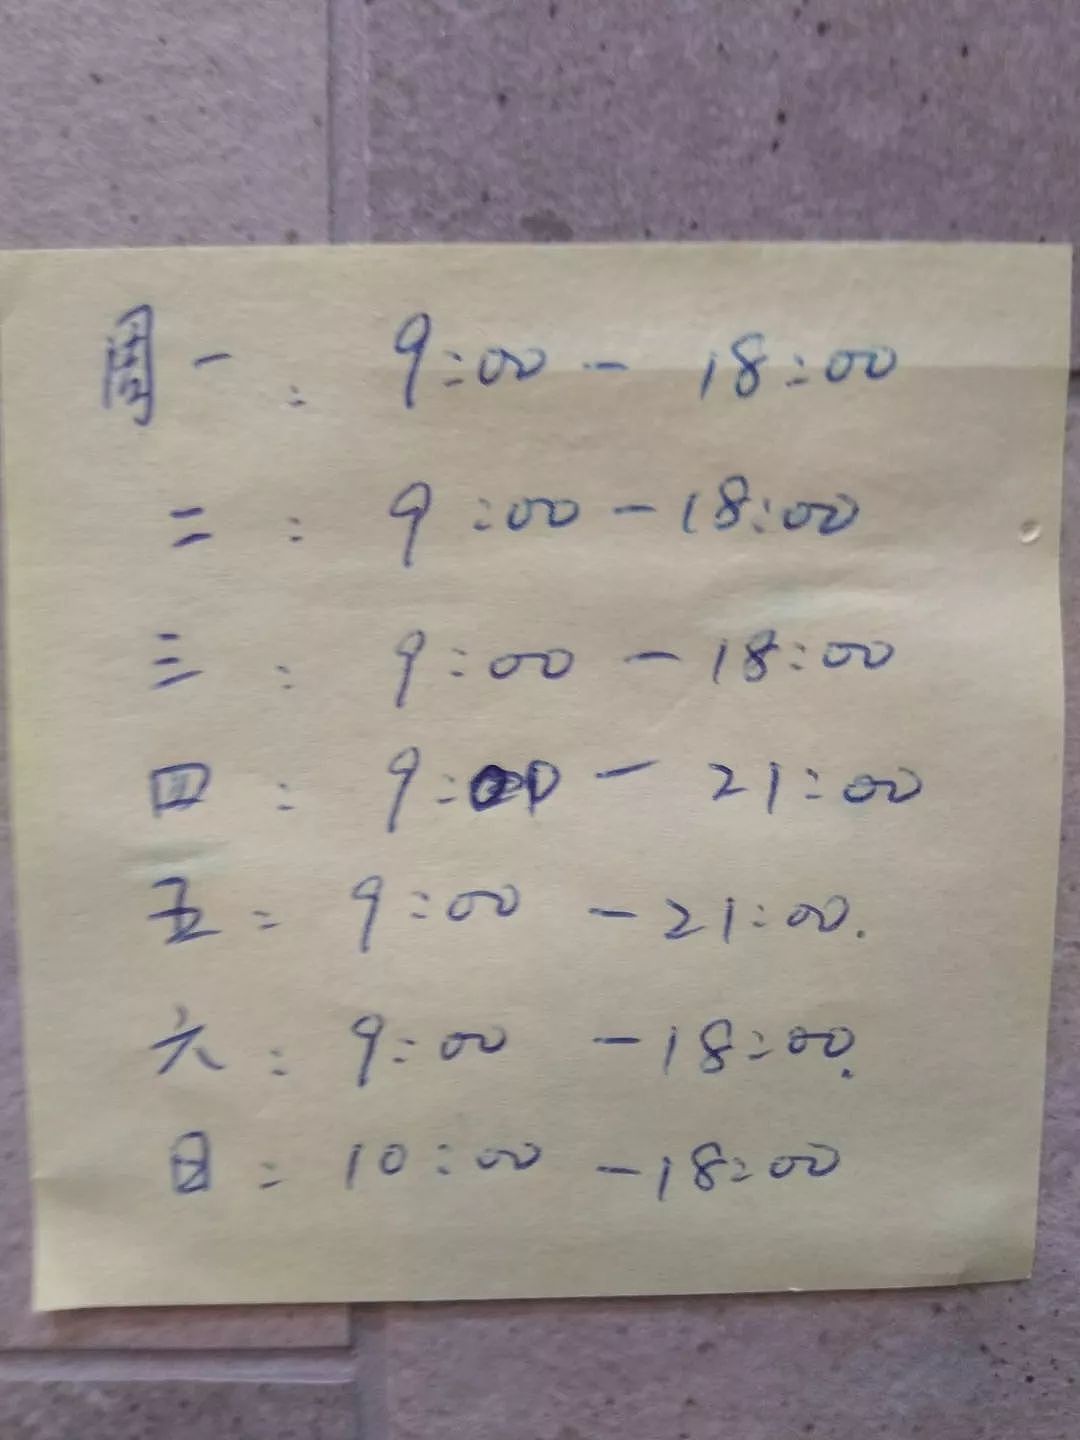 周一：9:00-18:00
二：9:00-18:00
三：9:00-18:00
四：9:00-21:00
五：9:00-21:00.
六：9:00-18:00.
日：10:00-18:00